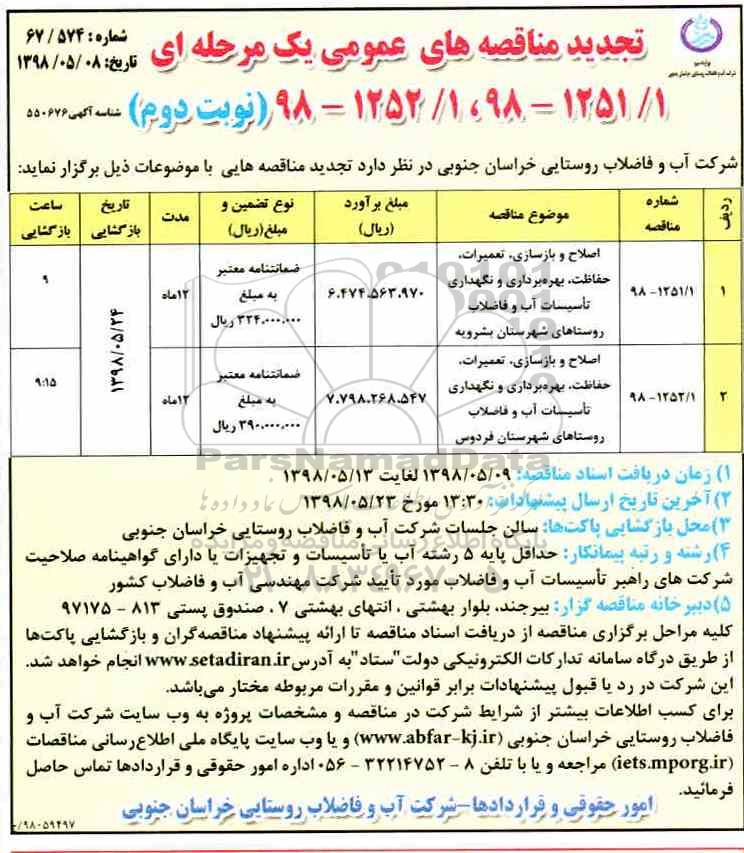 شماره : ۵۷۴ / ۶۷
تجدید مناقصه های عمومی یک مرحله ای
تاریخ: ۱۳۹۸/۰۵/۰۸
۹۸ – ۱۲۵۱/۱ ، ۹۸ – ۱۲۵۲/۱ (نوبت دوم)
شناسه آگهی ۵۵۰۶۷۶
شرکت آب و فاضلاب روستایی خراسان جنوبی در نظر دارد تجدید مناقصه هایی با موضوعات ذیل برگزار نماید:
ردیف | شماره مناقصه | موضوع مناقصه | مبلغ برآورد (ریال) | نوع تضمین و مبلغ(ریال) | مدت | تاریخ بازگشایی | ساعت بازگشایی
۱ | ۱۲۵۱/۱- ۹۸ | اصلاح و بازسازی، تعمیرات، حفاظت، بهره‌برداری و نگهداری تأسیسات آب و فاضلاب روستاهای شهرستان بشرویه | ۶.۴۷۴.۵۶۳.۹۷۰ | ضمانتنامه معتبر به مبلغ ۳۲۴.۰۰۰.۰۰۰ ریال | ۱۲ماه | ۱۳۹۸/۰۵/۲۴ | ۹
۲ | ۱۲۵۲/۱- ۹۸ | اصلاح و بازسازی، تعمیرات، حفاظت، بهره‌برداری و نگهداری تأسیسات آب و فاضلاب روستاهای شهرستان فردوس | ۷.۷۹۸.۲۶۸.۵۴۷ | ضمانتنامه معتبر به مبلغ ۳۹۰.۰۰۰.۰۰۰ ریال | ۱۲ماه | ۹:۱۵
۱) زمان دریافت اسناد مناقصه: ۱۳۹۸/۰۵/۰۹ لغایت ۱۳۹۸/۰۵/۱۳
۲) آخرین تاریخ ارسال پیشنهادات: ۱۳:۳۰ مورخ ۱۳۹۸/۰۵/۲۳
۳)محل بازگشایی پاکت‌ها: سالن جلسات شرکت آب و فاضلاب روستایی خراسان جنوبی
۴)رشته و رتبه پیمانکار: حداقل پایه ۵ رشته آب یا تأسیسات و تجهیزات یا دارای گواهینامه صلاحیت
شرکت های راهبر تأسیسات آب و فاضلاب مورد تأیید شرکت مهندسی آب و فاضلاب کشور
۵)دبیرخانه مناقصه گزار: بیرجند، بلوار بهشتی ، انتهای بهشتی ۷ ، صندوق پستی ۸۱۳ – ۹۷۱۷۵
کلیه مراحل برگزاری مناقصه از دریافت اسناد مناقصه تا ارائه پیشنهاد مناقصه‌گران و بازگشایی پاکت‌ها
از طریق درگاه سامانه تدارکات الکترونیکی دولت"ستاد"به آدرسwww.setadiran.ir انجام خواهد شد.
این شرکت در رد یا قبول پیشنهادات برابر قوانین و مقررات مربوطه مختار می‌باشد.
برای کسب اطلاعات بیشتر از شرایط شرکت در مناقصه و مشخصات پروژه به وب سایت شرکت آب و
فاضلاب روستایی خراسان جنوبی (www.abfar-kj.ir) و یا وب سایت پایگاه ملی اطلاع‌رسانی مناقصات
(iets.mporg.ir) مراجعه و یا با تلفن ۸ – ۳۲۲۱۴۷۵۲ – ۰۵۶اداره امور حقوقی و قراردادها تماس حاصل
فرمائید.
امور حقوقی و قراردادها–شرکت آب و فاضلاب روستایی خراسان جنوبی
۹۸۰۵۹۴۹۷/-
ParsNamadData
پایگاه اطلاع رسانی مناقصه و مزایده
۰۲۱-۸۸۳۴۹۶۷۰-۵